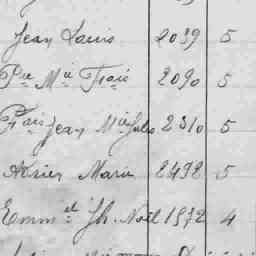 Jean Louis 2039 5
Pre Mie Frois 2090 5
Frois Jean Mie Jules 2310 5
Adrien Marie 2498 5
Emmel Jh. Noël 1972 4